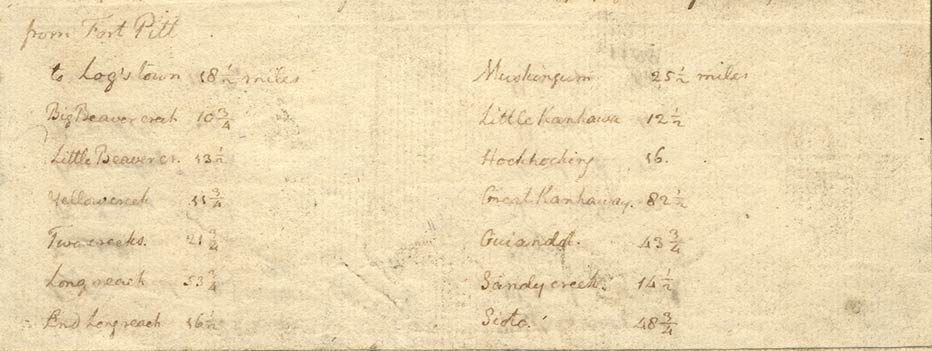 from Fort Pitt
to Log's town 18½ miles
Big Beaver creek 10¾
Little Beaver cr. 13½
Yellow creek 11¾
Two creeks. 21¾
Long reach 53¾
End Long reach 16½
Muskingum 25½ miles
Little Kanhawa 12½
Hockhocking 16.
Great Kanhaway. 82½
Guiandot. 43¾
Sandy creek. 14½
Sioto. 48¾